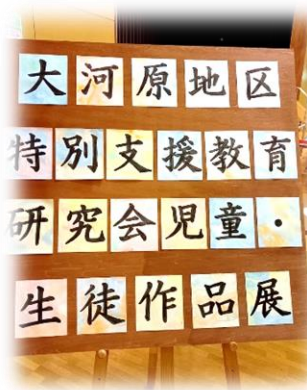 大河原地区
特別支援教育
研究会児童・
生徒作品展